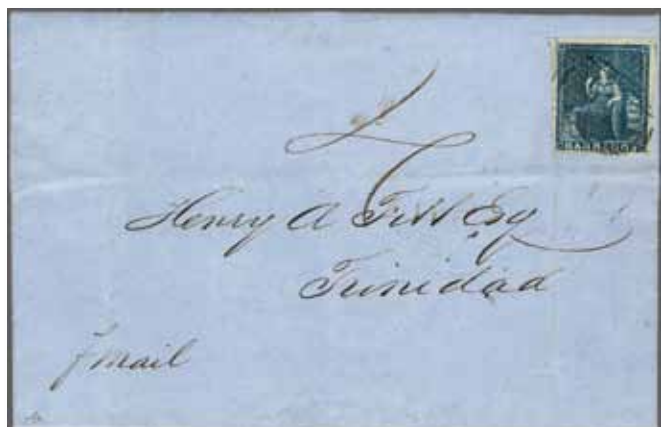 BARBADOS
Henry A Fitt Esq
Trinidad
pr mail